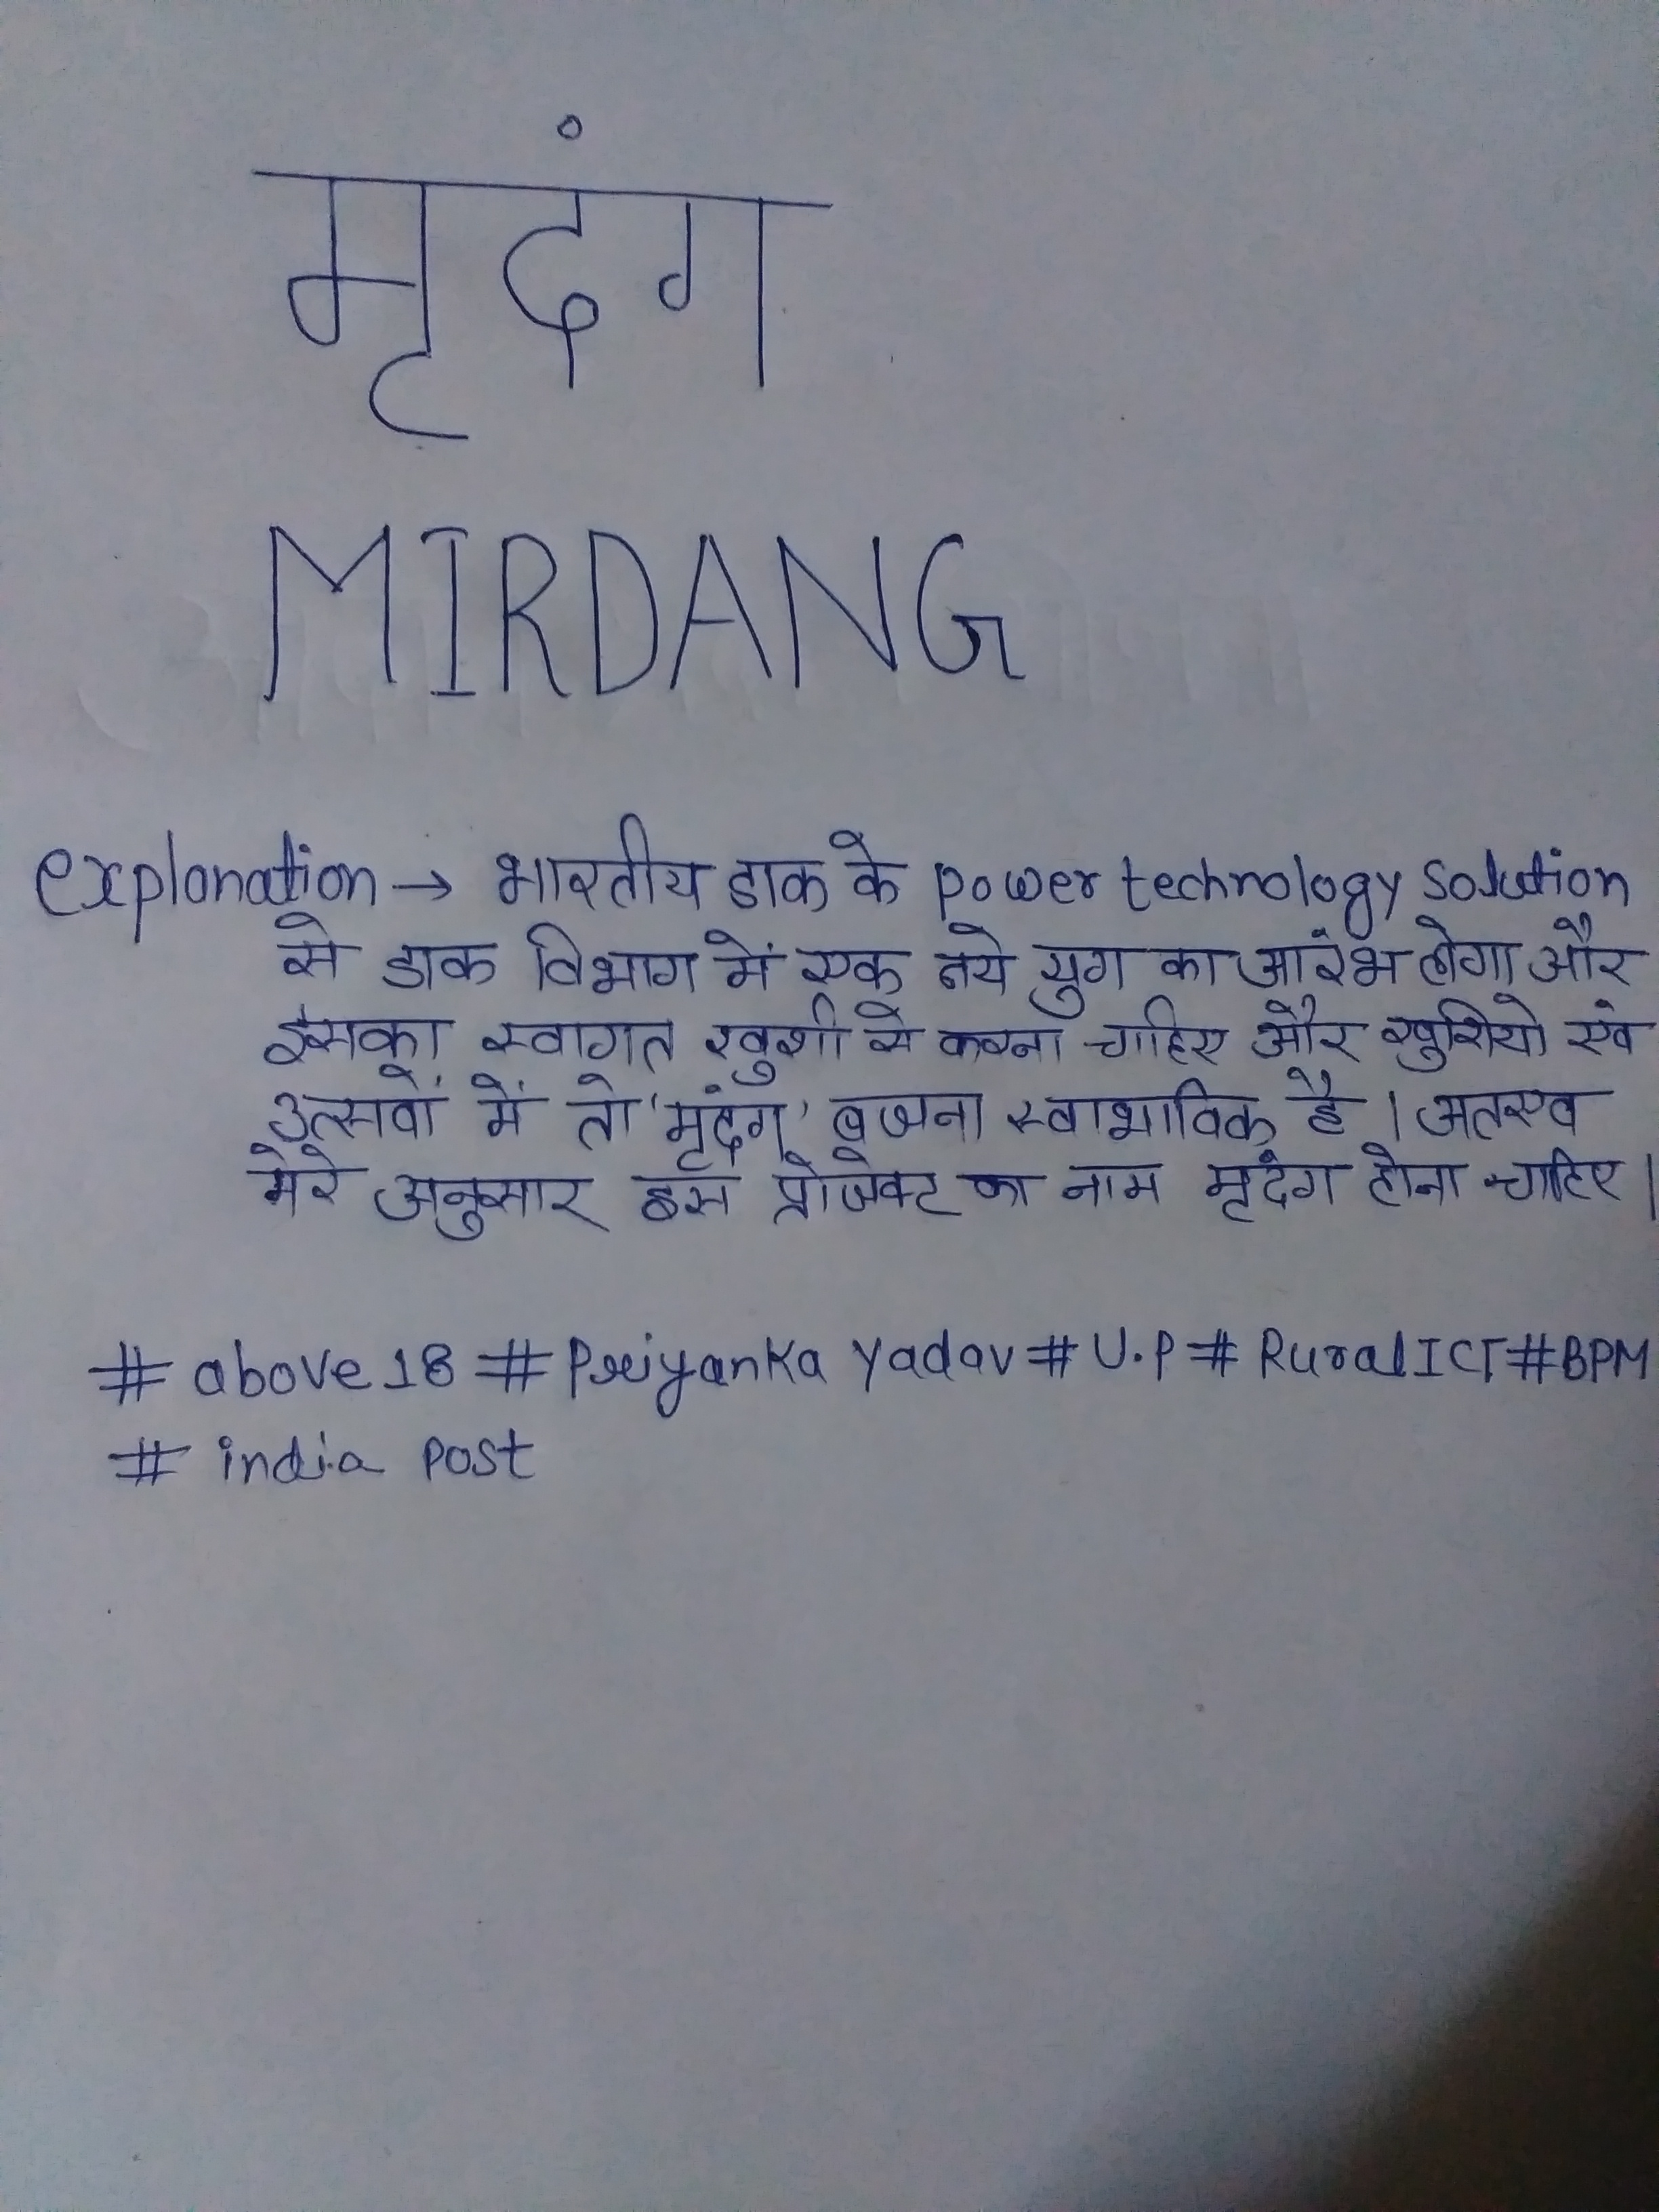 मृदंग
MIRDANG
explanation → भारतीय डाक के power technology solution
से डाक विभाग में एक नये युग का आरंभ होगा और
इसका स्वागत खुशी से करना चाहिए और खुशियो एंव
उत्सवों में तो 'मृदंग' बजना स्वाभाविक है । अतएव
मेरे अनुसार इस प्रोजेक्ट का नाम मृदंग होना चाहिए ।
# above 18 # Priyanka Yadav # U.P # Rural ICT # BPM
# india post